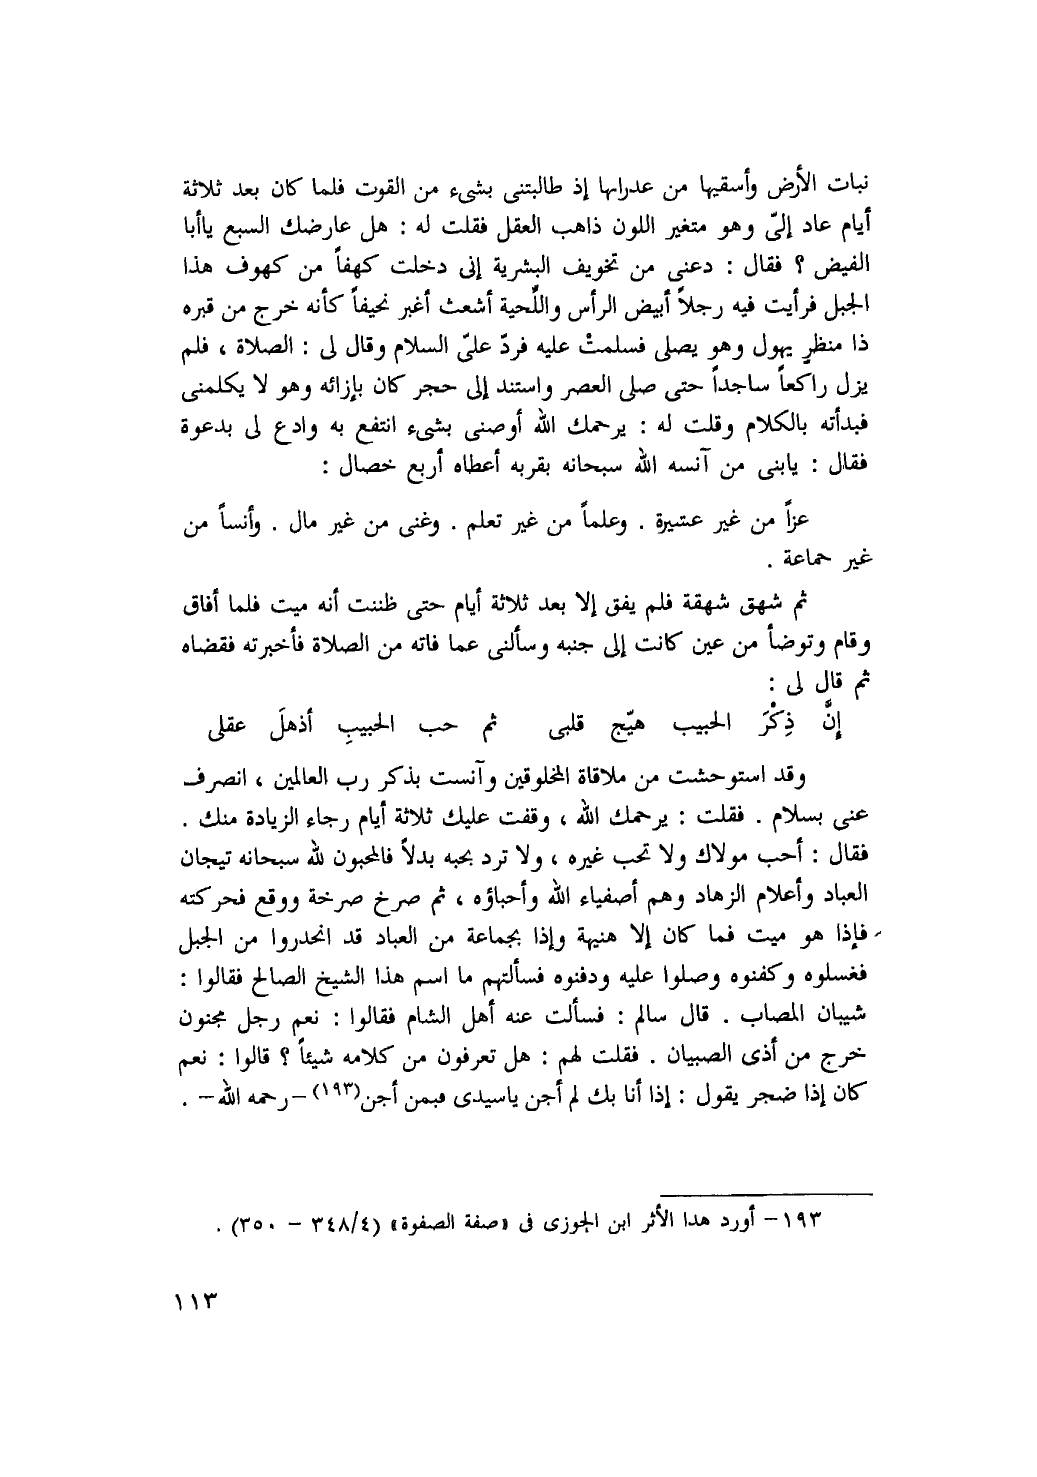 نبات الأرض وأسقيها من عدرانها إذ طالبتنى بشىء من القوت فلما كان بعد ثلاثة
أيام عاد إلىّ وهو متغير اللون ذاهب العقل فقلت له : هل عارضك السبع ياأبا
الفيض ؟ فقال : دعنى من تخويف البشرية إنى دخلت كهفاً من كهوف هذا
الجبل فرأيت فيه رجلاً أبيض الرأس واللّحية أشعث أغبر نحيفاً كأنه خرج من قبره
ذا منظرٍ يهول وهو يصلى فسلمتُ عليه فردّ علىّ السلام وقال لى : الصلاة ، فلم
يزل راكعاً ساجداً حتى صلى العصر واستند إلى حجر كان بإزائه وهو لا يكلمنى
فبدأته بالكلام وقلت له : يرحمك الله أوصنى بشىء انتفع به وادع لى بدعوة
فقال : يابنى من آنسه الله سبحانه بقربه أعطاه أربع خصال :
عزاً من غير عشيرة . وعلماً من غير تعلم . وغنى من غير مال . وأنساً من
غير حماعة .
ثم شهق شهقة فلم يفق إلا بعد ثلاثة أيام حتى ظننت أنه ميت فلما أفاق
وقام وتوضأ من عين كانت إلى جنبه وسألنى عما فاته من الصلاة فأخبرته فقضاه
ثم قال لى :
إنَّ ذِكْرَ الحبيب هيّج قلبى ثم حب الحبيبِ أذهلَ عقلى
وقد استوحشت من ملاقاة المخلوقين وآنست بذكر رب العالمين ، انصرف
عنى بسلام . فقلت : يرحمك الله ، وقفت عليك ثلاثة أيام رجاء الزيادة منك .
فقال : أحب مولاك ولا تحب غيره ، ولا ترد بحبه بدلاً فالمحبون لله سبحانه تيجان
العباد وأعلام الزهاد وهم أصفياء الله وأحباؤه ، ثم صرخ صرخة ووقع فحركته
فإذا هو ميت فما كان إلا هنيهة وإذا بجماعة من العباد قد انحدروا من الجبل
فغسلوه وكفنوه وصلوا عليه ودفنوه فسألتهم ما اسم هذا الشيخ الصالح فقالوا :
شيبان المصاب . قال سالم : فسألت عنه أهل الشام فقالوا : نعم رجل مجنون
خرج من أذى الصبيان . فقلت لهم : هل تعرفون من كلامه شيئاً ؟ قالوا : نعم
كان إذا ضجر يقول : إذا أنا بك لم أجن ياسيدى فبمن أجن(١٩٣) –رحمه الله– .
١٩٣– أورد هدا الأثر ابن الجوزى فى «صفة الصفوة» (٣٤٨/٤ – ٣٥٠) .
١١٣